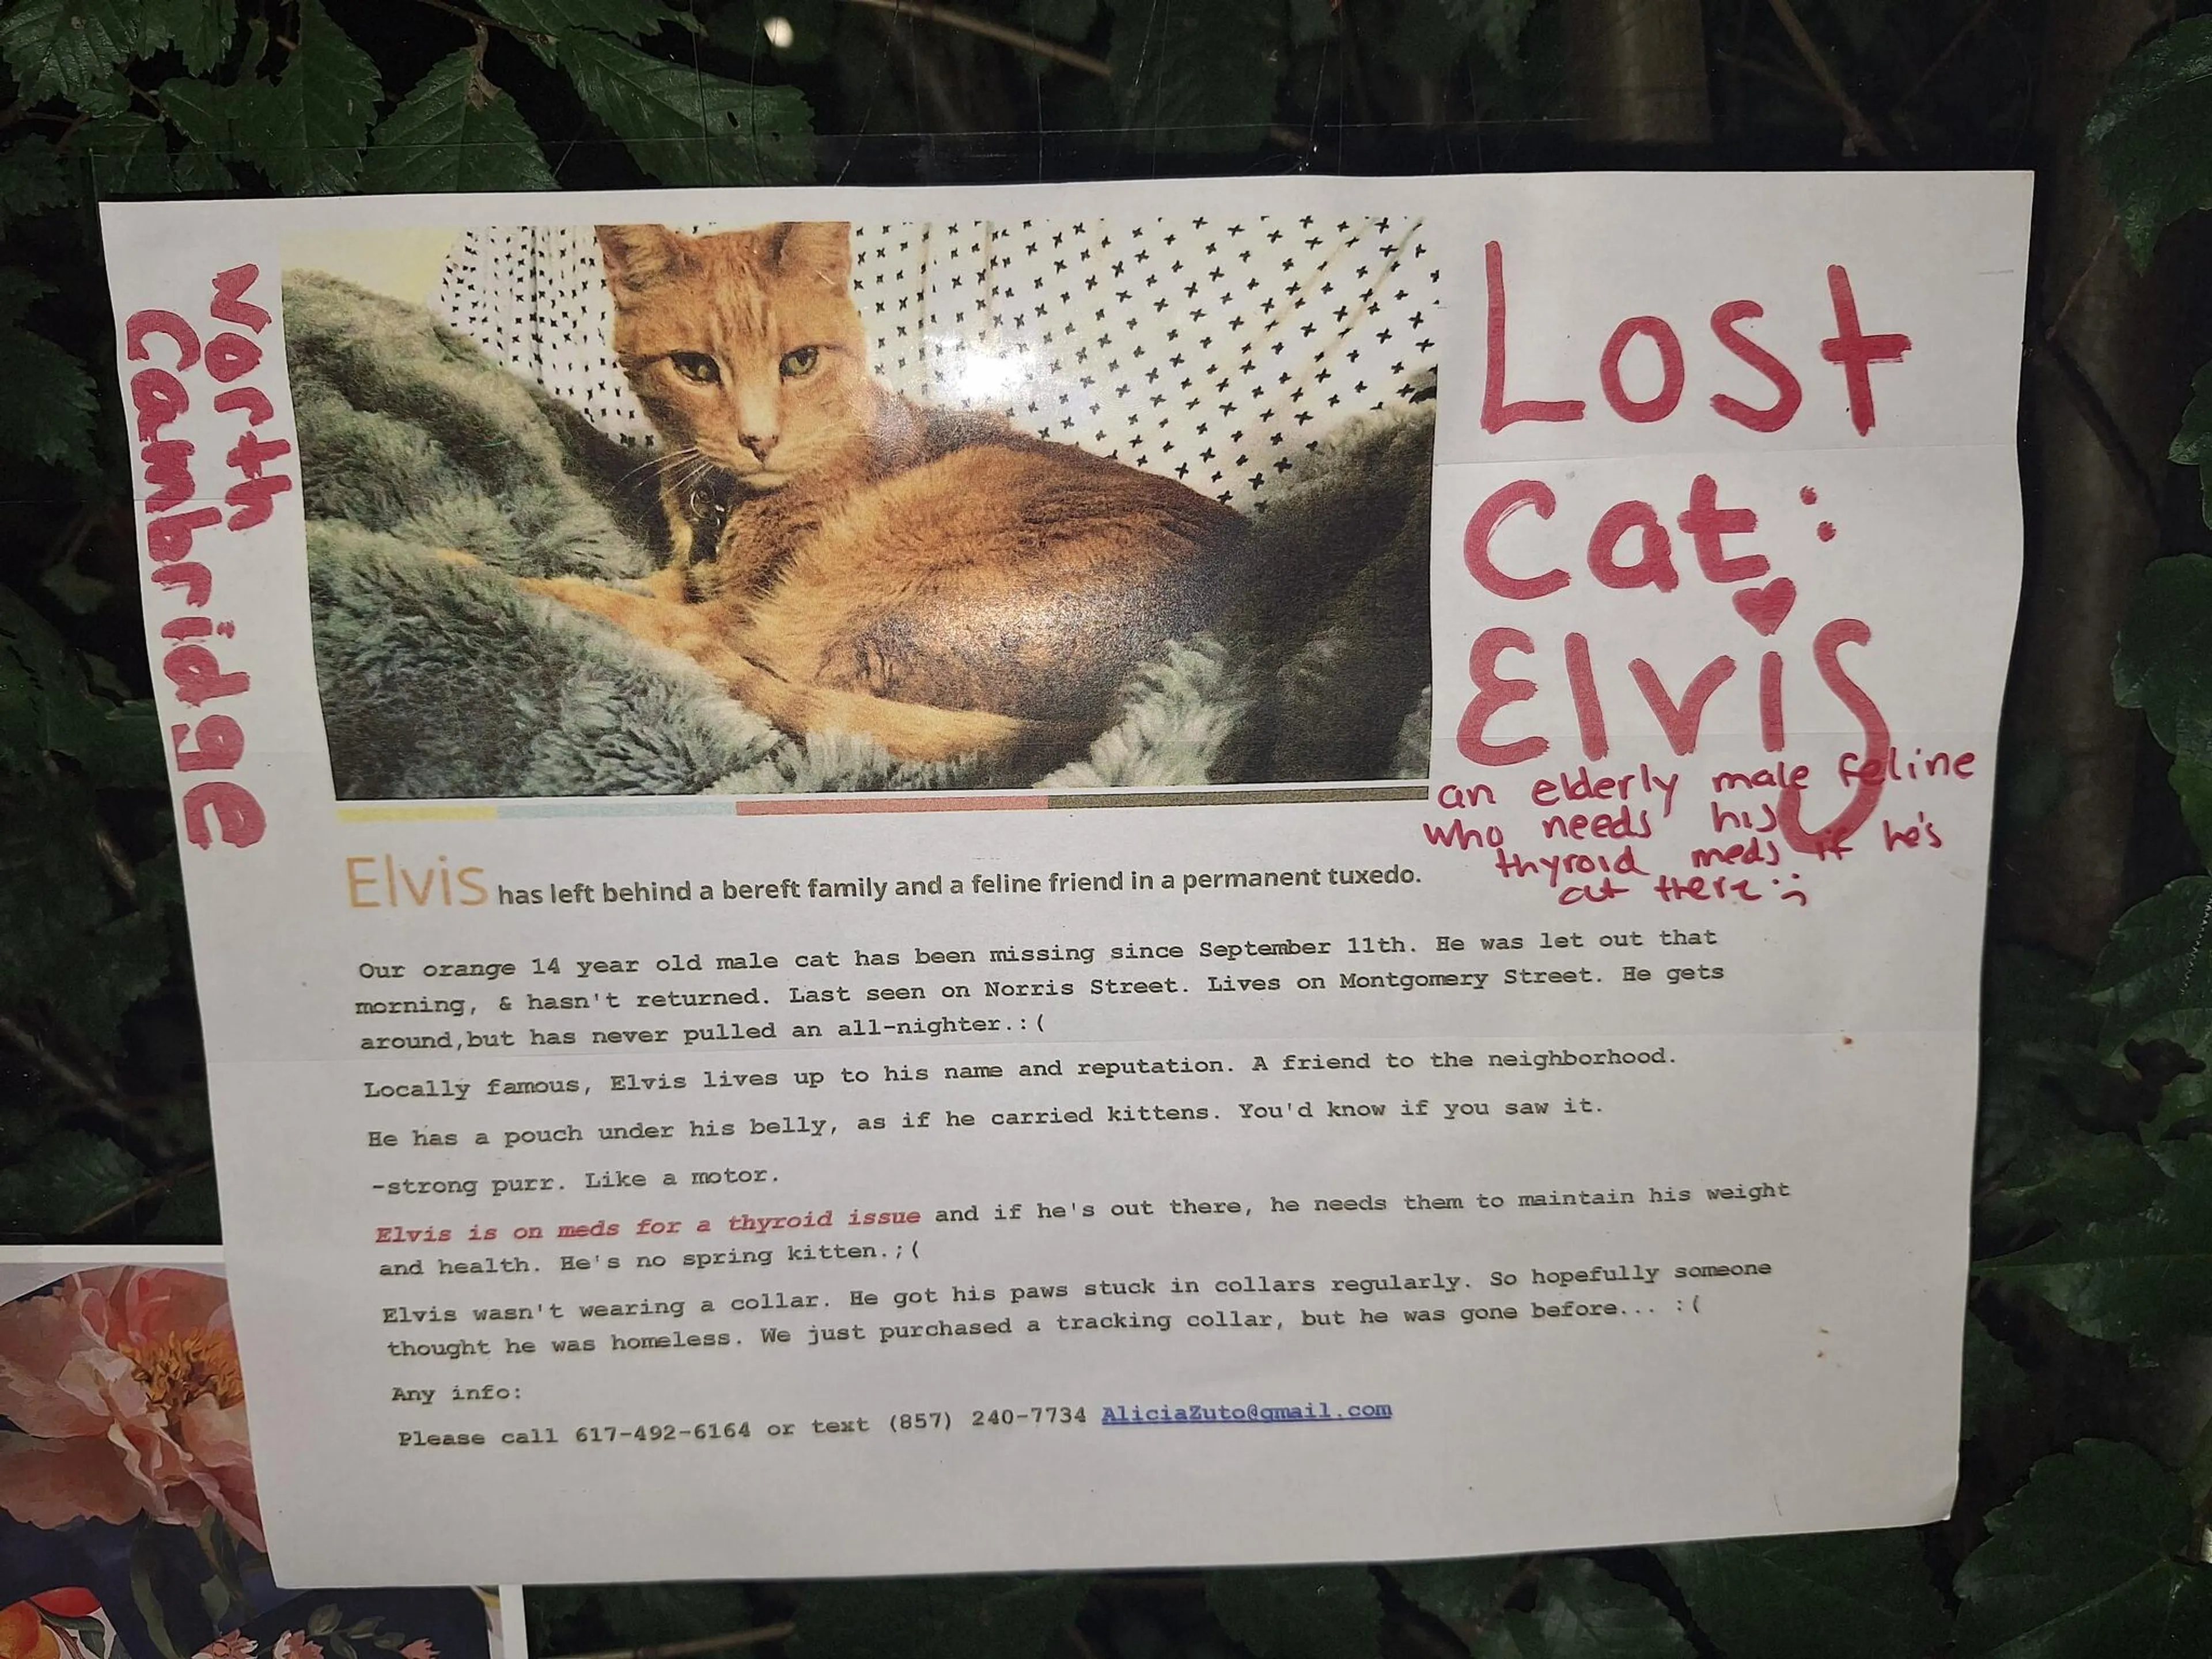 North
Cambridge
Lost
Cat:
Elvis
an elderly male feline
who needs his
thyroid meds if he's
out there :;
Elvis has left behind a bereft family and a feline friend in a permanent tuxedo.
Our orange 14 year old male cat has been missing since September 11th. He was let out that
morning, & hasn't returned. Last seen on Norris Street. Lives on Montgomery Street. He gets
around,but has never pulled an all-nighter.:(
Locally famous, Elvis lives up to his name and reputation. A friend to the neighborhood.
He has a pouch under his belly, as if he carried kittens. You'd know if you saw it.
-strong purr. Like a motor.
Elvis is on meds for a thyroid issue and if he's out there, he needs them to maintain his weight
and health. He's no spring kitten.;(
Elvis wasn't wearing a collar. He got his paws stuck in collars regularly. So hopefully someone
thought he was homeless. We just purchased a tracking collar, but he was gone before... :(
Any info:
Please call 617-492-6164 or text (857) 240-7734 AliciaZuto@gmail.com